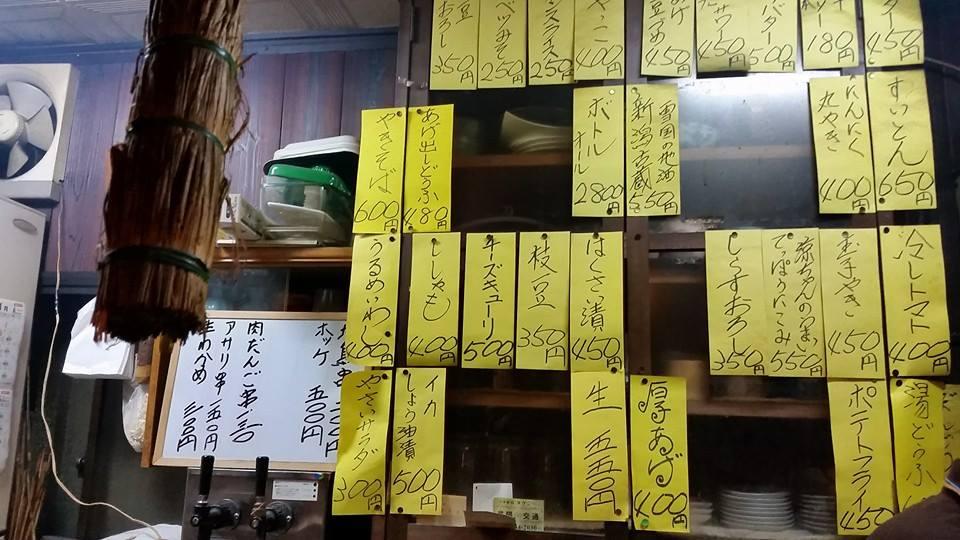 おろし
350円
ベツみそ
250円
ンスライス
250円
やっこ
400円
450円
サワー
450円
バター
500円
180円
ター
450円
やきそば
600円
あげ出しどうふ
480円
ボトル
2800円
雪国の地酒
新潟古蔵
550円
にんにく
丸やき
400円
すいとん
650円
うるめいわし
400円
ししゃも
400円
チーズキューリ
500円
枝豆
350円
はくさい漬
450円
しらすおろし
350円
てっぽうにこみ
550円
玉子やき
450円
冷しトマト
400円
やさいサラダ
300円
イカ
しょう油漬
500円
生
五五〇円
厚子あげ
400円
ポテトフライ
450
湯どうふ
ホッケ
五〇〇円
肉だんご
アサリ串
一五〇円
生わかめ
三〇〇円